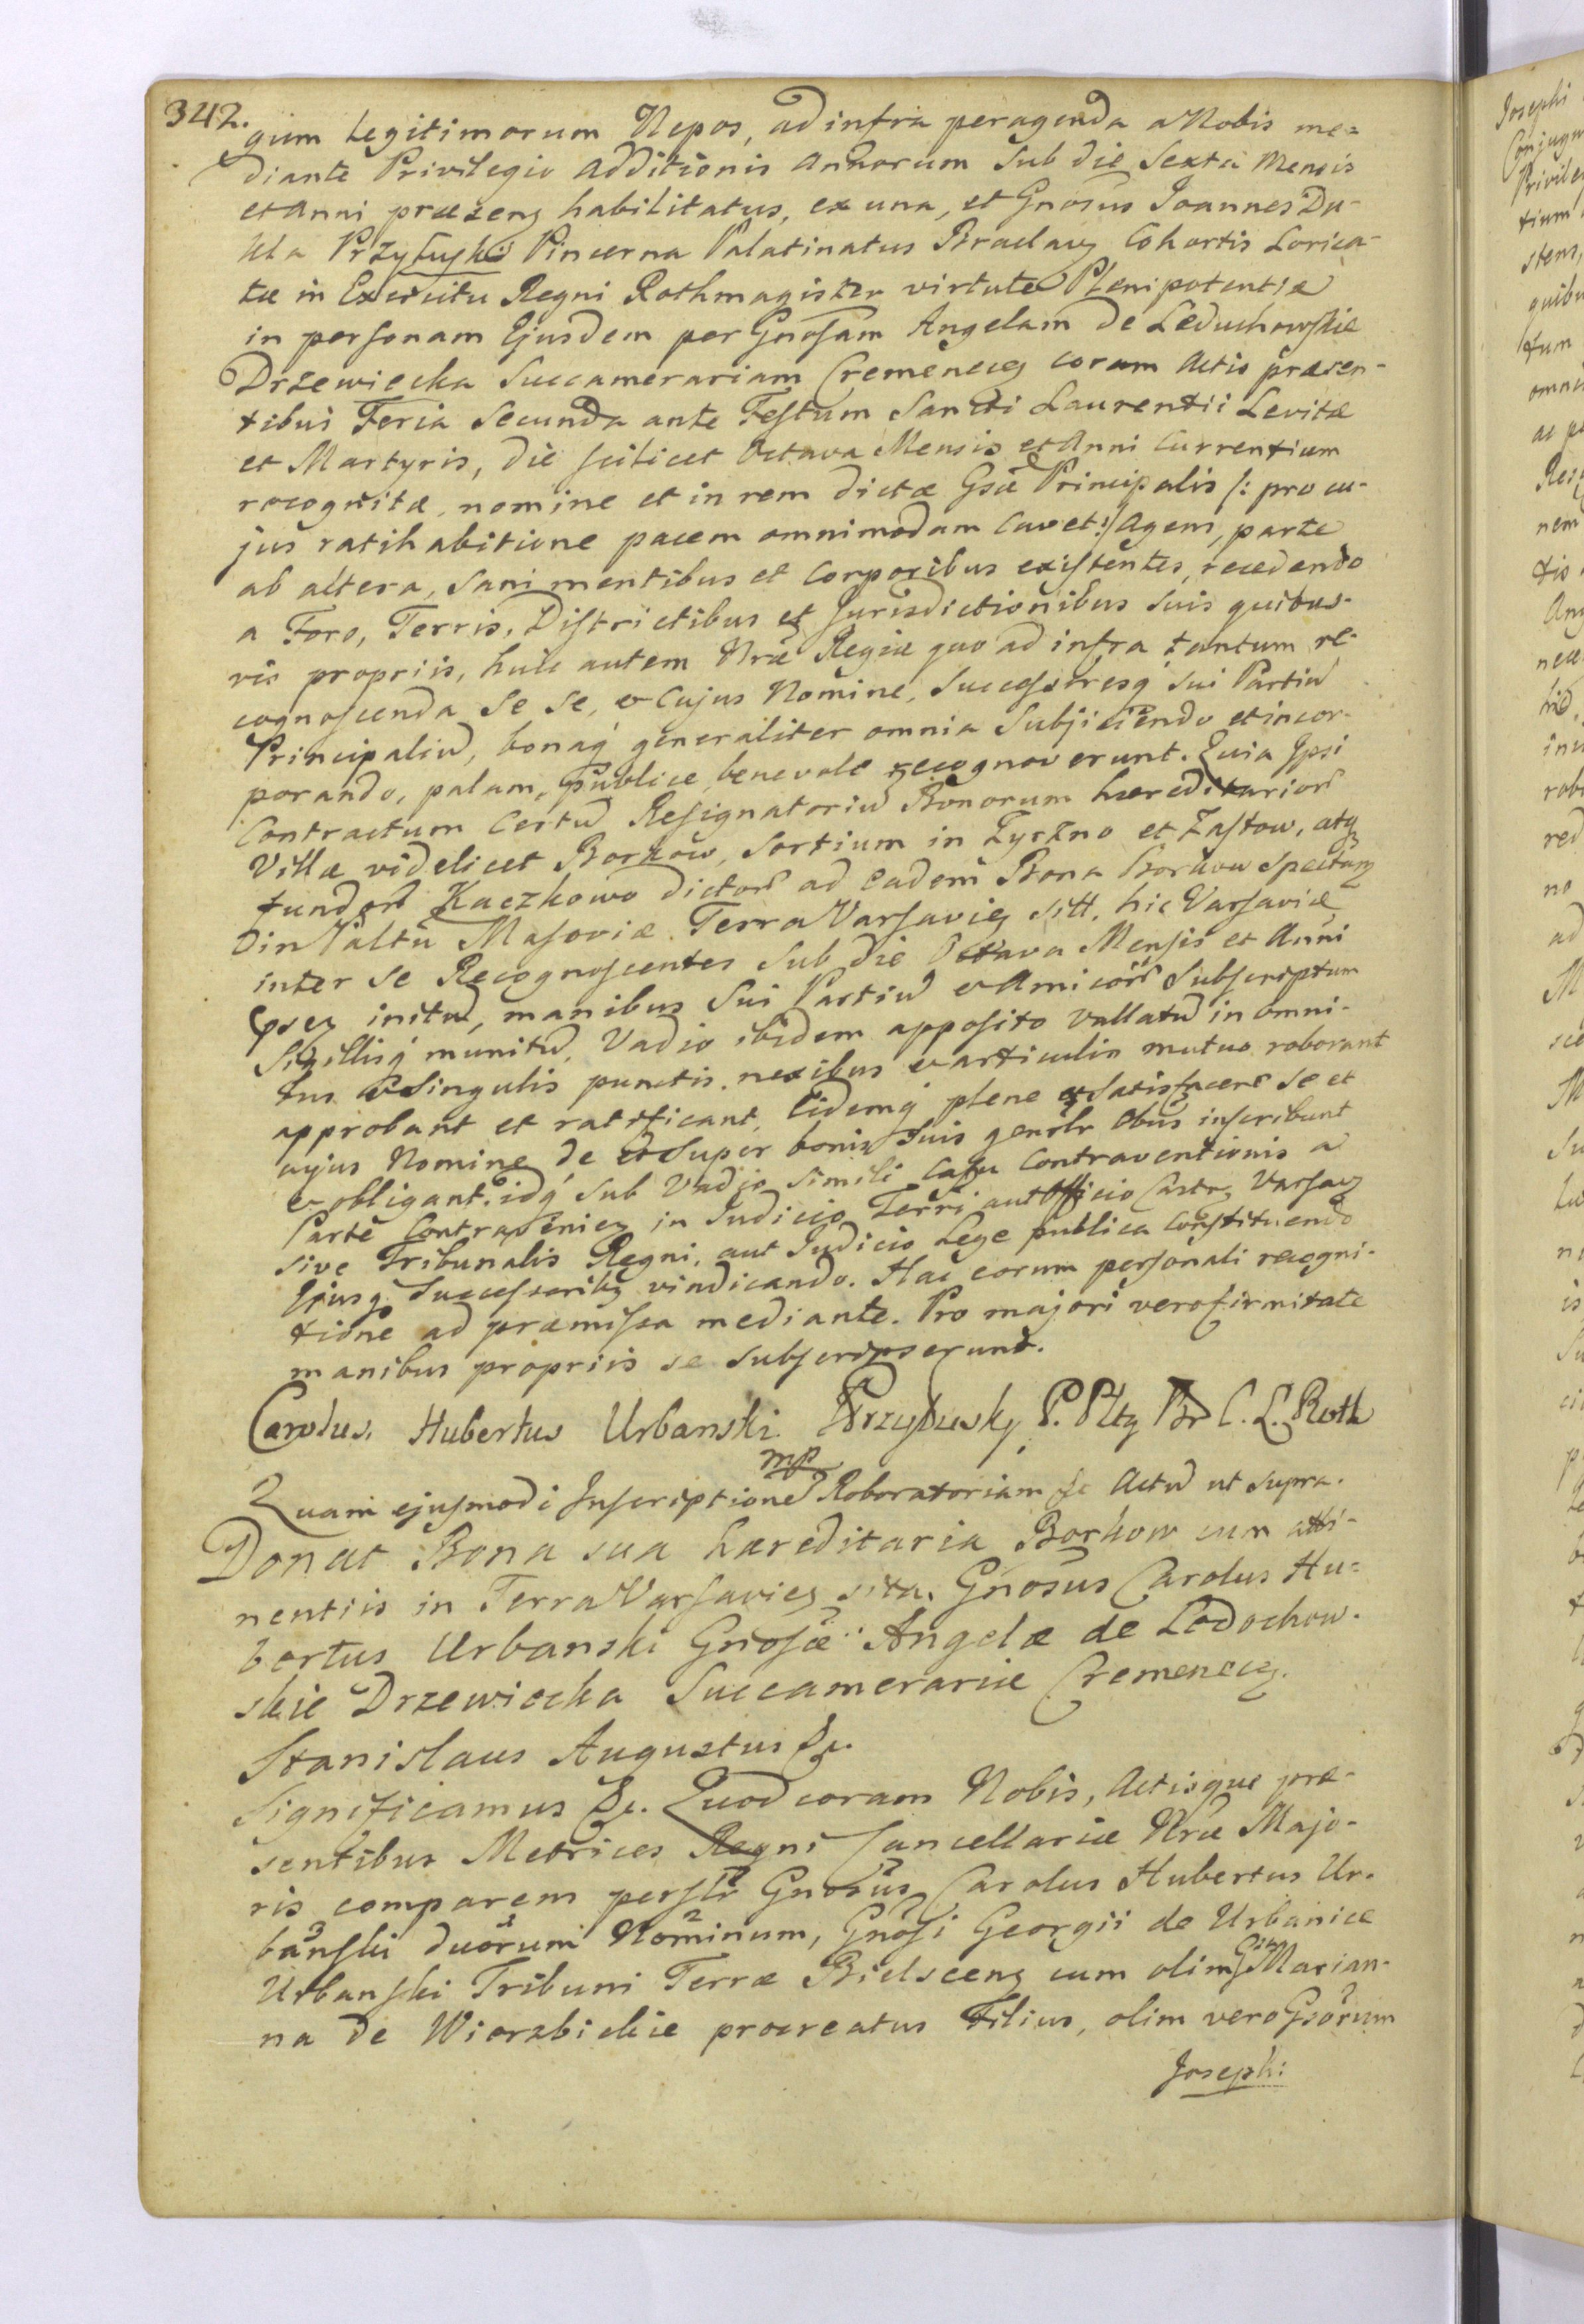 342.
gum Legitimorum Nepos, ad infra peragenda a Nobis me=
diante Privilegio Additionis Annorum sub die Sexta Mensis
et Anni praesenz habilitatus, ex una, et Gnosus Joannes Du-
kla Przyłuski Pincerna Palatinatus Braclavz Cohortis Lorica-
tae in Exercitu Regni Rothmagister virtute Plenipotentiae
in personam Ejusdem per Gnosam Angelam de Leduchowskie
Drzewiecka Succamerariam Cremenecz coram Actis praesen-
tibus Feria Secunda ante Festum Sancti Laurentii Levitae
et Martyris, die scilicet Octava Mensis et Anni Currentium
recognitae, nomine et in rem dictae Gsae Principalis /: pro cu-
jus ratihabitione pacem omnimodam cavet :/ Agens, parte
ab altera, sani mentibus et Corporibus existentes, recedendo
a Foro, Terris, Districtibus et Jurisdictionibus suis quibus-
vis propriis, huic autem Nrae Regiae quo ad infra tantum re-
cognoscenda se se, & cujus Nomine, Successoresq sui Partiu
Principaliu, bonaq generaliter omnia Subjiciendo et incor-
porando, palam, Publice, benevole recognoverunt. Quia Ipsi
Contractum certu Resignatoriu Bonorum haereditarior
Villae videlicet Borkow, Sortium in Zyczno et Zastow, atq
fundor Kaczkowo dictor ad eadem Bona Borkow spectanz
in Paltu Masoviae Terra Varsaviez sitt. hic Varsaviae
inter se Recognoscentes sub die Octava Mensis et Anni
psez initu, manibus sui Partiu & Amicor Subscriptum
Sigillisq munitu, Vadio ibidem apposito vallatu in omni-
bus & singulis punctis, nexibus & articulis mutuo roborant
approbant et ratificant, Eidemq plene & satisfacere se et
cujus Nomine de et super bonis suis genelr obus inscribunt
& obligant. idq sub Vadio simili casu Contraventionis a
Parte Contraveniez in Judicio Terri aut Officio Castr. Varsavz
sive Tribunalis Regni, aut Judicio Lege publica Constituendo
Ejusq Successoribz vindicando. Hac eorum personali recogni-
tione ad praemissa mediante. Pro majori vero firmitate
manibus propriis se subscripserunt.
Carolus Hubertus Urbanski Przyłusky P. Pltz Br C. L. Roth
mp
Quam ejusmodi Inscriptione Roboratoriam &c Actu ut supra.
Donat Bona sua haereditaria Borkow cum atti-
nentiis in Terra Varsaviez sita. Gnosus Carolus Hu=
bertus Urbanski Gnosae Angelae de Ledochow-
skie Drzewiecka Succamerariae Cremenecz.
Stanislaus Augustus &c.
Significamus &c. Quod coram Nobis, Actisque prae-
sentibus Metrices Regni Cancellariae Nrae Majo-
ris comparens perslr Gnosus Carolus Hubertus Ur-
banski duorum Nominum, Gnosi Georgii de Urbanice
Urbanski Tribuni Terrae Bielscenz cum olim Marian-
na de Wierzbickie procreatus Filius, olim vero Gsorum
Josephi